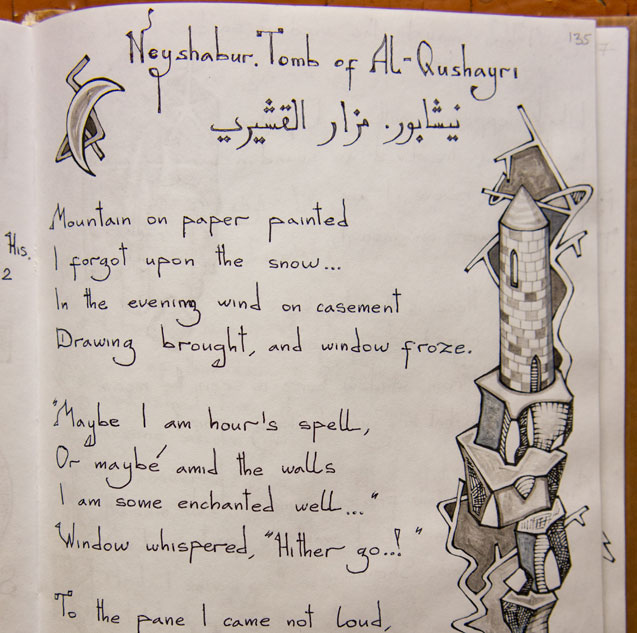 135
Neyshabur. Tomb of Al-Qushayri
نيشابور. مزار القشيري
Mountain on paper painted
I forgot upon the snow...
In the evening wind on casement
Drawing brought, and window froze.
"Maybe I am hour's spell,
Or maybé amid the walls
I am some enchanted well..."
Window whispered, "Hither go..!"
To the pane I came not loud,
His.
2